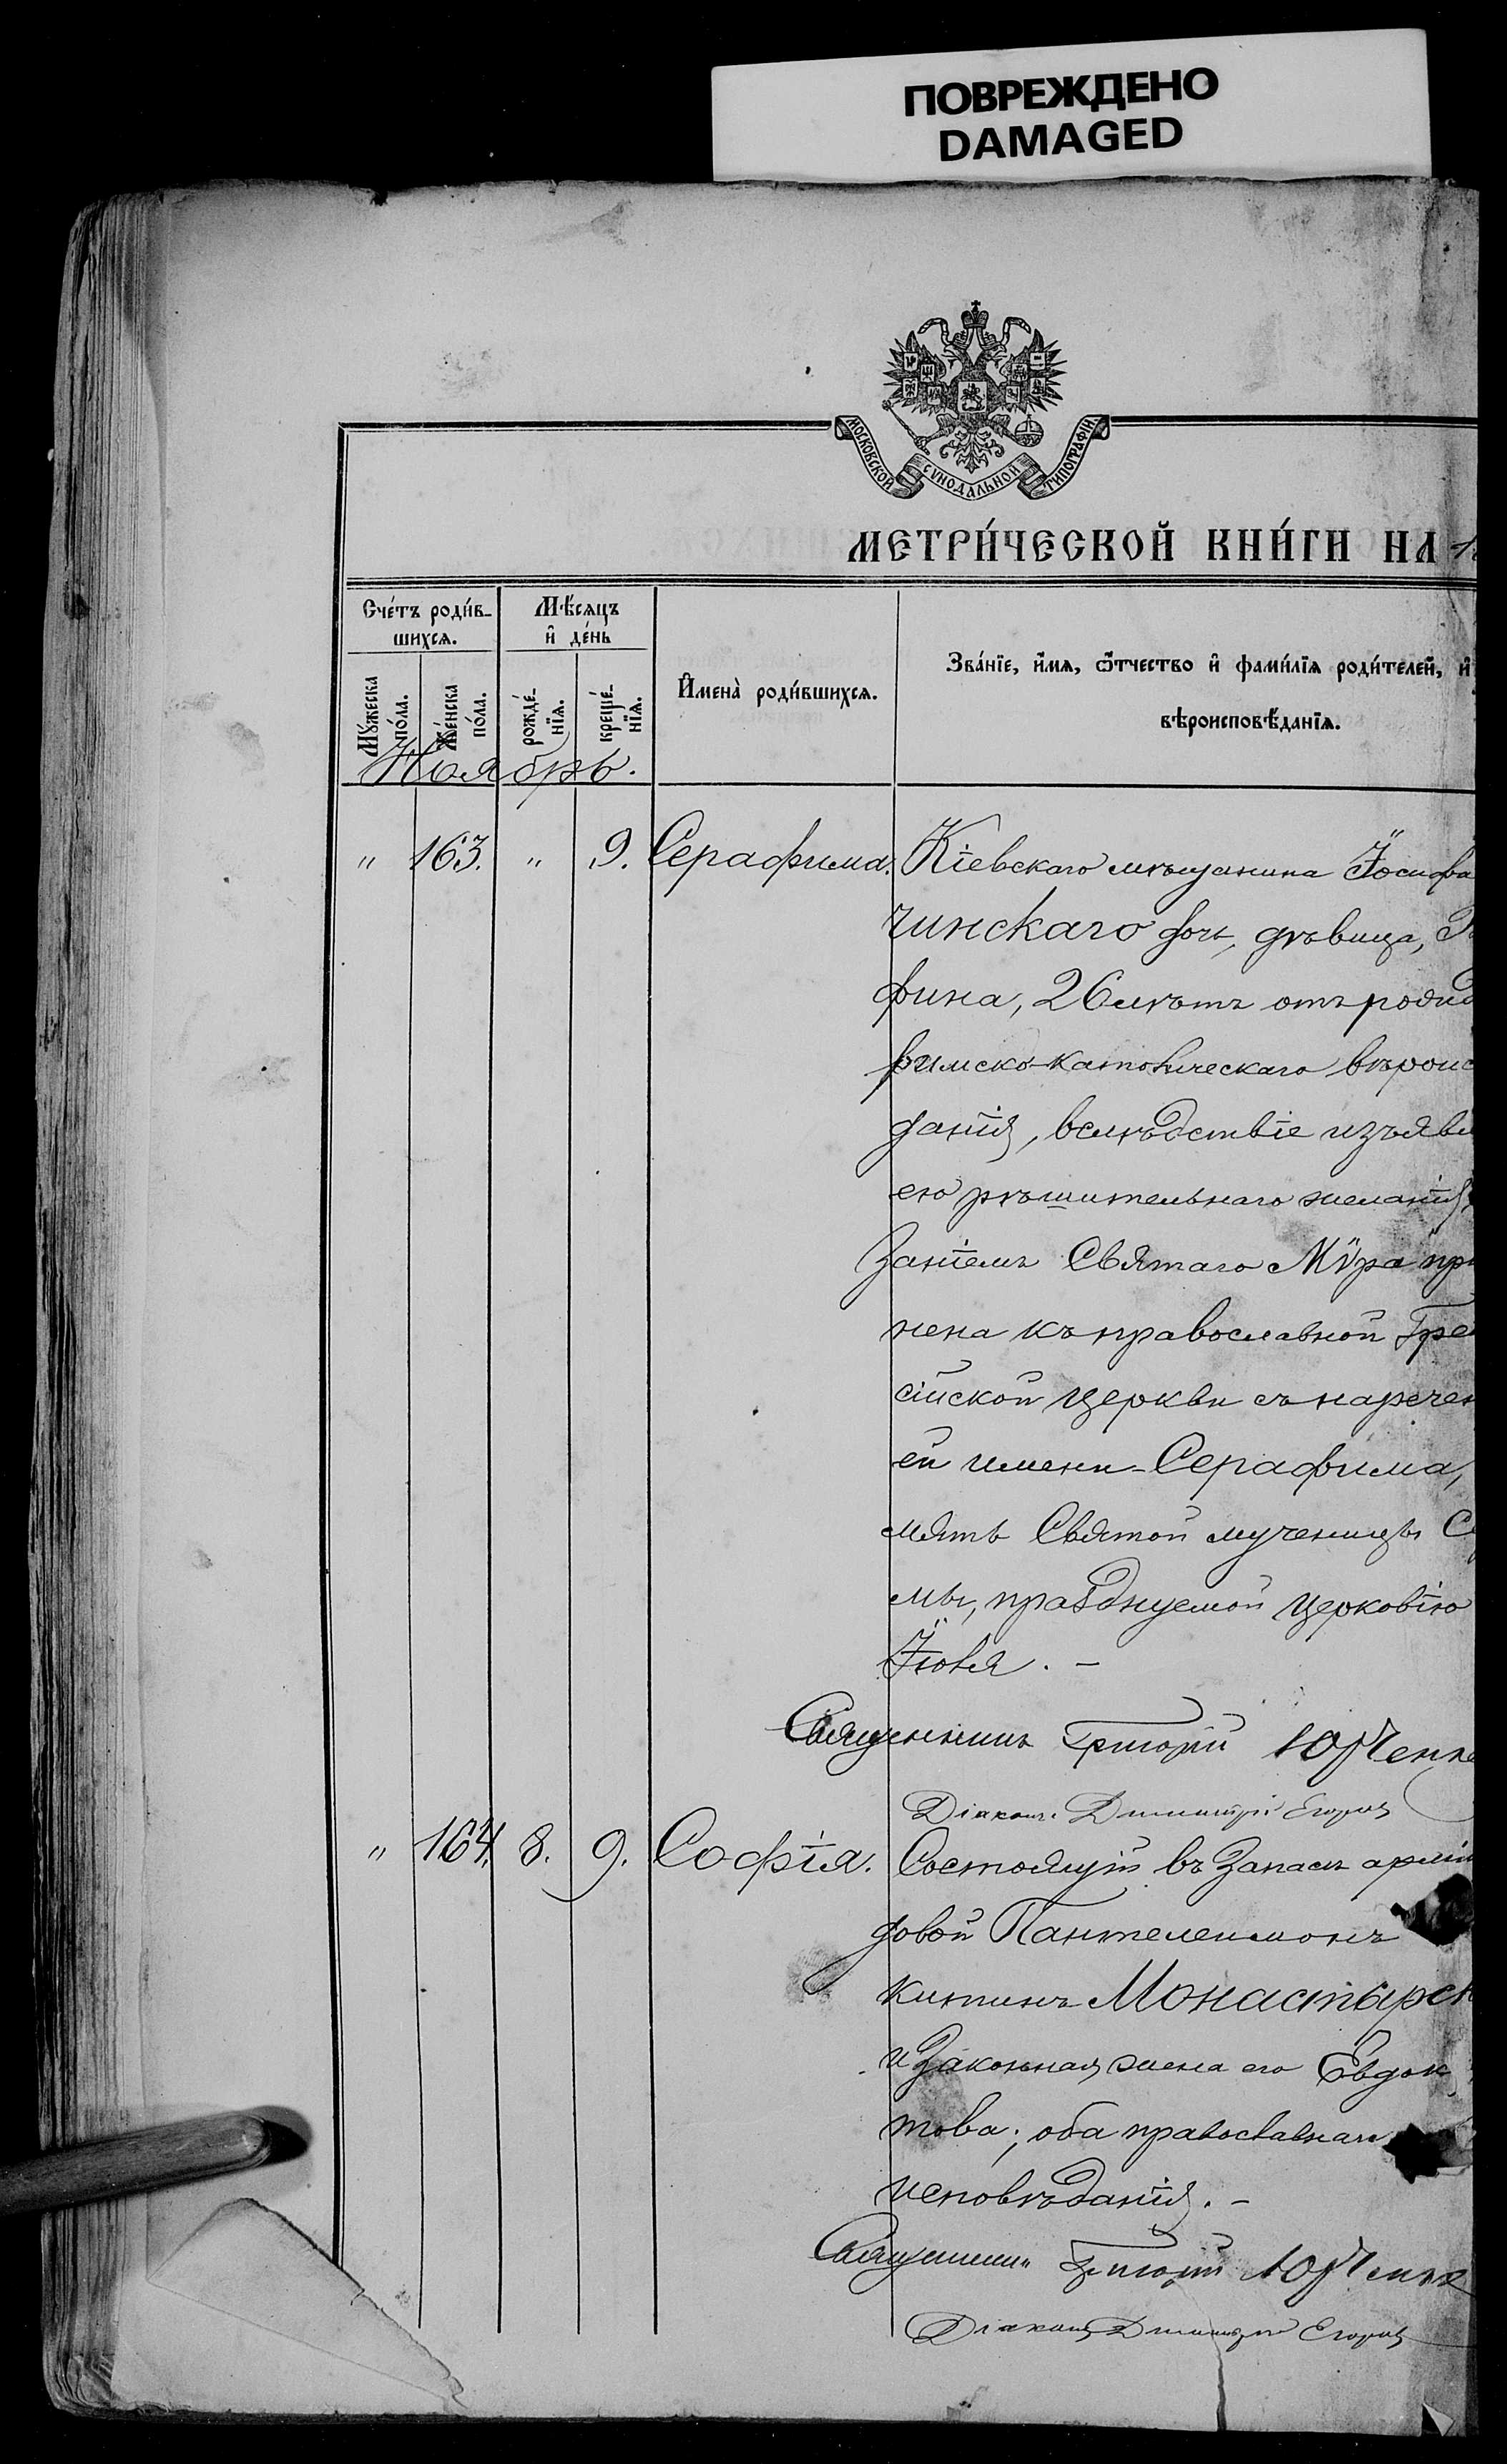 ПОВРЕЖДЕНО
DAMAGED
МОСКОВСКОЙ СѴНОДАЛЬНОЙ ТИПОГРАФІИ
МЕТРИ́ЧЕСКОЙ КНИ́ГИ НА 1
Сче́тъ роди́в-
шихся.
Мѣ́сяцъ
и҆ де́нь
Мꙋ́жеска по́ла.
Же́нска по́ла.
рожде́-нїя.
креще́-нїя.
И҆мена̀ роди́вшихся.
Зва́нїе, и҆́мя, ѻ҆́тчество и҆ фами́лїя роди́телей, и҆
вѣроисповѣ́данїя.
Ноябрь.
" 163. " 9. Серафима. Кіевскаго мѣщанина Іосифа
чинскаго дочь, дѣвица,
фина, 26 лѣтъ отъ рожд
римско-католическаго вѣроис
данія, вслѣдствіе изъявл
ею рѣшительнаго желанія,
заніемъ Святаго Мѵра при
нена къ православной Гре
сійской Церкви съ наречен
ей имени Серафима,
мять Святой мученицы С
мы, празднуемой Церковію
Іюля. -
Священникъ Григорій Юрченк
Діаконъ Димитрій Егоровъ
" 164. 8. 9. Софія. Состоящій въ Запасѣ арміи
довой Пантелеимонъ
китинъ Монастырск
и законная жена его Евдок
това; оба православнаго
исповѣданія. -
Священникъ Григорій Юрченк
Діаконъ Димитрій Егоровъ